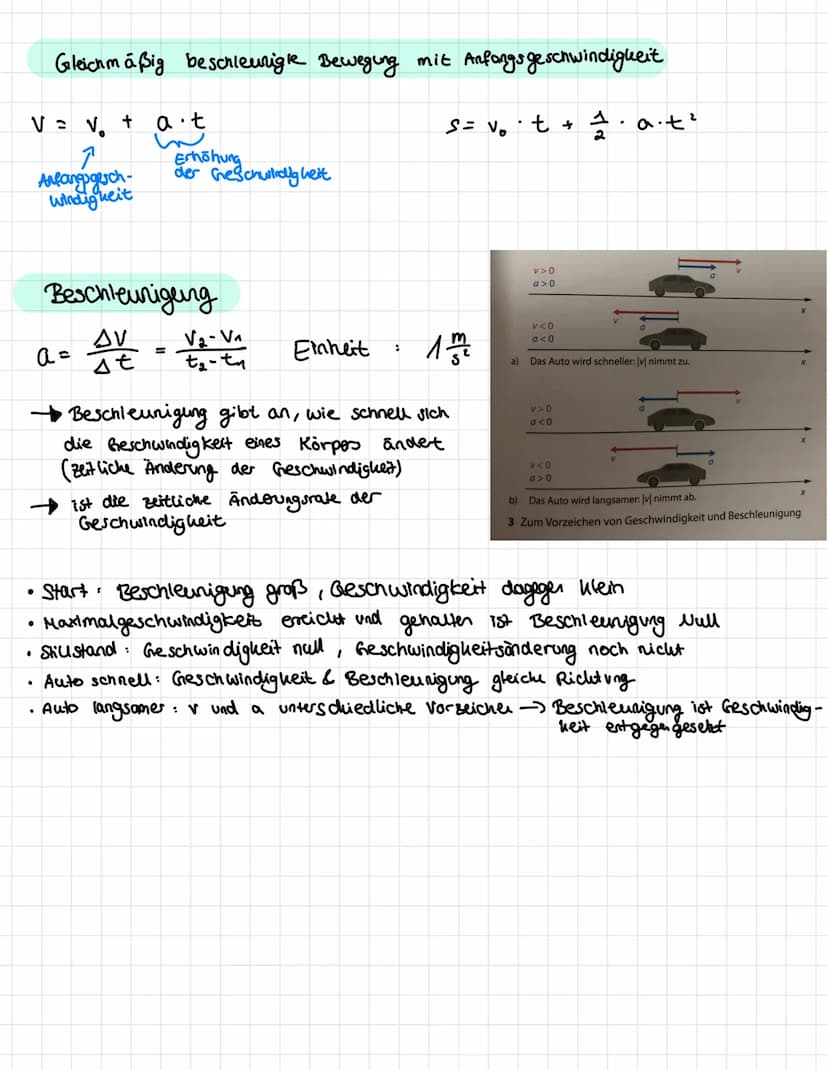 Gleichmäßig beschleunigte Bewegung mit Anfangsgeschwindigkeit
v = v₀ + a · t
s = v₀ · t + 1/2 · a · t²
Anfangsgesch-
windigkeit
Erhöhung
der Geschwindigkeit
Beschleunigung
a = Δv/Δt = v₂-v₁/t₂-t₁ Einheit : 1 m/s²
→ Beschleunigung gibt an, wie schnell sich
die Geschwindigkeit eines Körpes ändert
(zeitliche Änderung der Geschwindigkeit)
→ ist die zeitliche Änderungsrate der
Geschwindigkeit
v > 0
a > 0
a
v
x
v < 0
a < 0
v
a
x
a) Das Auto wird schneller: |v| nimmt zu.
v > 0
a < 0
a
v
x
v < 0
a > 0
v
a
x
b) Das Auto wird langsamer: |v| nimmt ab.
3 Zum Vorzeichen von Geschwindigkeit und Beschleunigung
• Start : Beschleunigung groß, Geschwindigkeit dagegen klein
• Maximalgeschwindigkeit erreicht und gehalten ist Beschleunigung Null
• Stillstand : Geschwindigkeit null, Geschwindigkeitsänderung noch nicht
• Auto schnell : Geschwindigkeit & Beschleunigung gleiche Richtung
• Auto langsamer : v und a unterschiedliche Vorzeichen → Beschleunigung ist Geschwindig-
keit entgegengesetzt